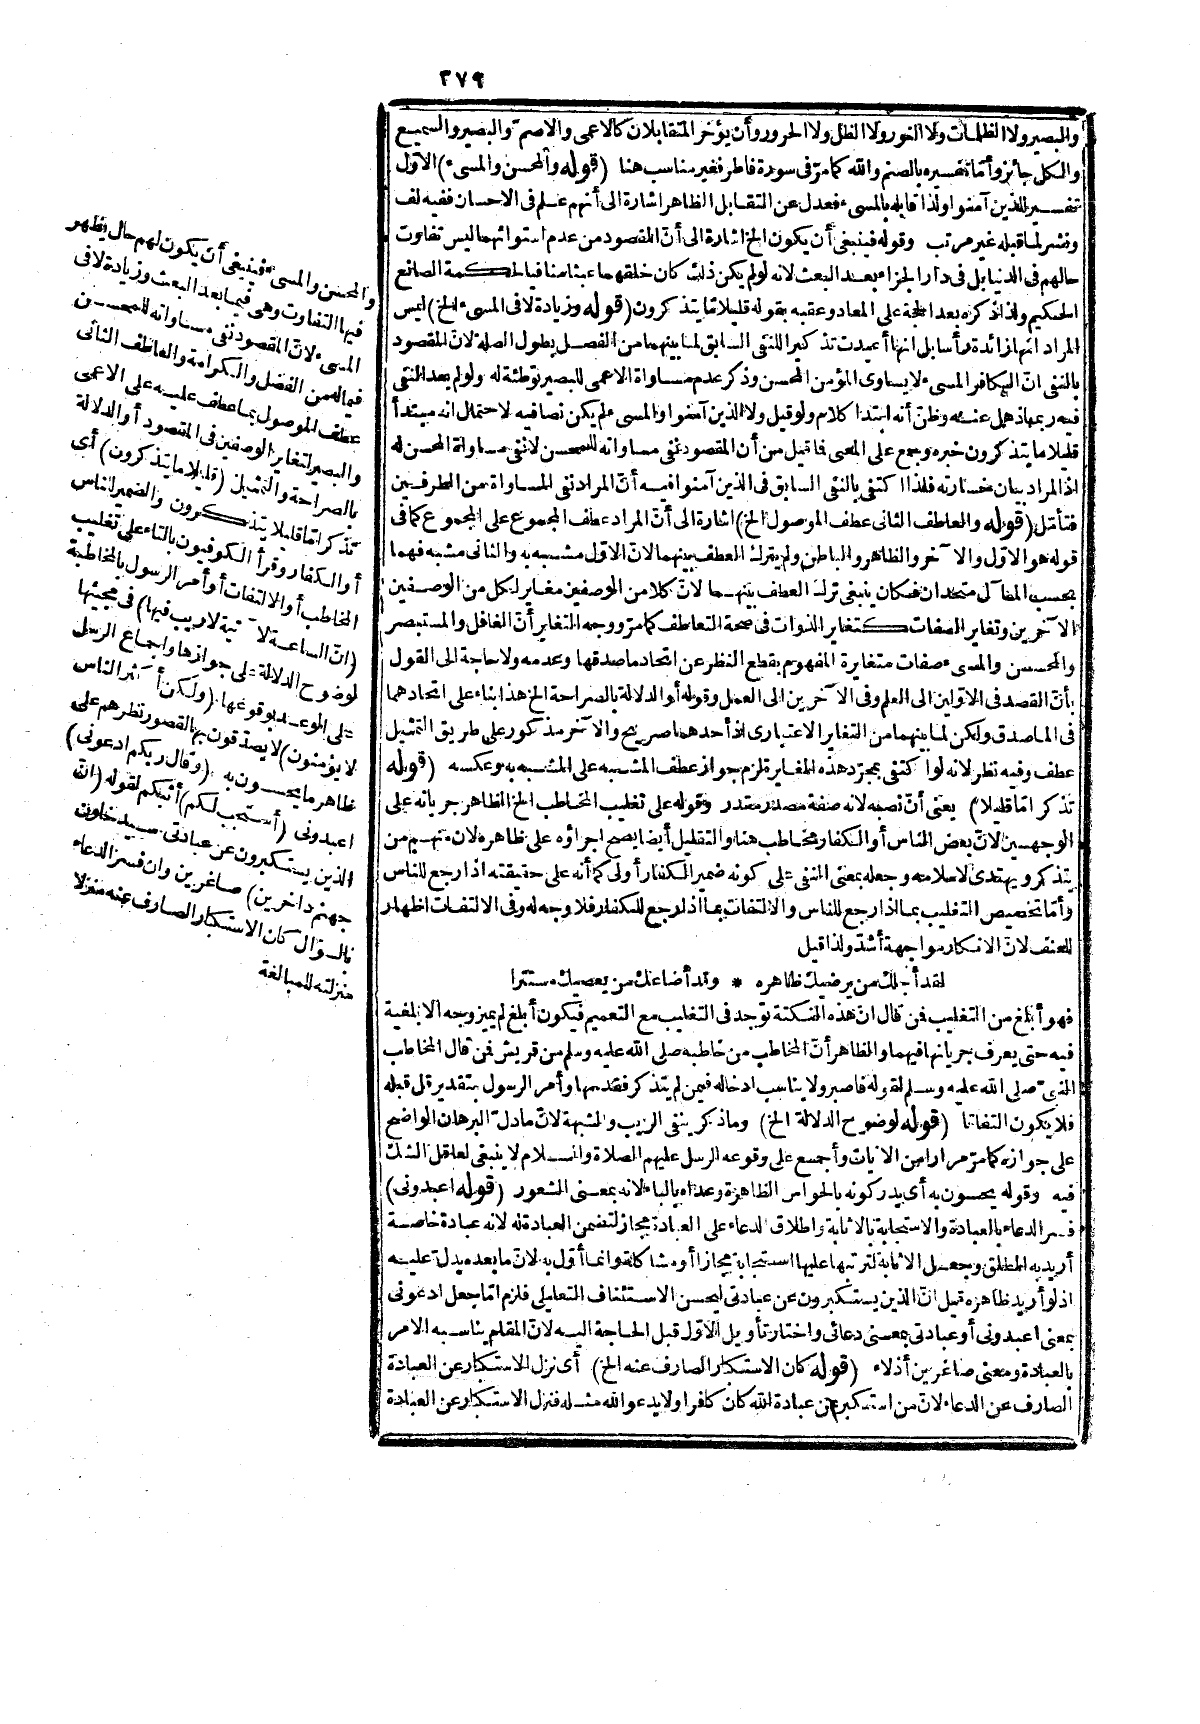 ٣٧٩
والبصير ولا الظلمات ولا النور ولا الظل ولا الحرور وأن يؤخر المتقابلان كالاعمى والاصم والبصير والسميع
والكل جائز وأما تفسيره بالصنم والله كما مرّ فى سورة فاطر فغير مناسب هنا (قوله والمحسن والمسىء) الاوّل
تفسير للذين آمنوا ولذا قابله بالمسىء فعدل عن التقابل الظاهر اشارة الى أنهم علم فى الاحسان ففيه لف
ونشر لما قبله غير مرتب وقوله فينبغى أن يكون الخ اشارة الى أنّ المقصود من عدم استوائهما ليس تفاوت
حالهم فى الدنيا بل فى دار الجزاء بعد البعث لانه لو لم يكن ذلك كان خلقهما عبثا منافيا لحكمة الصانع
الحكيم ولذا ذكره بعد الحجة على المعاد وعقبه بقوله قليلا ما يتذكرون (قوله وزيادة لا فى المسىء الخ) ليس
المراد انها زائدة رأسا بل انها أعيدت تذكيرا للنفى السابق لما بينهما من الفصل بطول الصلة لان المقصود
بالنفى انّ الكافر المسىء لا يساوى المؤمن المحسن وذكر عدم مساواة الاعمى للبصير توطئة له ولو لم يعد النفى
فيه ربما ذهل عنه وظنّ أنه ابتدا كلام ولو قيل ولا الذين آمنوا والمسىء لم يكن نصا فيه لاحتمال انه مبتدأ
قليلا ما يتذكرون خبره وجمع على المعنى فما قيل من أن المقصود نفى مساواته للمحسن لا نفى مساواة المحسن له
اذ المراد بيان خسارته فلذا اكتفى بالنفى السابق فى الذين آمنوا فيه أنّ المراد نفى المساواة من الطرفين
فتأمّل (قوله والعاطف الثانى عطف الموصول الخ) اشارة الى أنّ المراد عطف المجموع على المجموع كما فى
قوله هو الاوّل والآخر والظاهر والباطن ولم يترك العطف بينهما لانّ الاوّل مشبه به والثانى مشبه فهما
بحسب المآل متحدان فكان ينبغى ترك العطف بينهما لانّ كلا من الوصفين مغاير لكل من الوصفين
الآخرين وتغاير الصفات كتغاير الذوات فى صحة التعاطف كما مرّ ووجه التغاير أنّ الغافل والمستبصر
والمحسن والمسىء صفات متغايرة المفهوم بقطع النظر عن اتحاد ما صدقها وعدمه ولا حاجة الى القول
بأنّ القصد فى الاوّلين الى العلم وفى الآخرين الى العمل وقوله أو الدلالة بالصراحة الخ هذا بناء على اتحادهما
فى الماصدق ولكن لما بينهما من التغاير الاعتبارى اذ أحدهما صريح والآخر مذكور على طريق التمثيل
عطف وفيه نظر لانه لو اكتفى بمجرّد هذه المغايرة لزم جواز عطف المشبه على المشبه به وعكسه (قوله
تذكرا ما قليلا) يعنى أنّ نصبه لانه صفة مصدر مقدر وقوله على تغليب المخاطب الخ الظاهر جريانه على
الوجهين لانّ بعض الناس أو الكفار مخاطب هنا والتقليل أيضا يصح اجراؤه على ظاهره لان منهم من
يتذكر ويهتدى لاسلامه وجعله بمعنى النفى على كونه ضمير الكفار أولى كما أنه على حقيقته اذا رجع للناس
وأمّا تخصيص التغليب بما اذا رجع للناس والالتفات بما اذا رجع للكفار فلا وجه له وفى الالتفات اظهار
للعنف لانّ الانكار مواجهة أشدّ ولذا قيل
لقد أجلك من يرضيك ظاهره * وقد أضاعك من يعصيك مستترا
فهو أبلغ من التغليب فمن قال انّ هذه النكتة توجد فى التغليب مع التعميم فيكون أبلغ لم يميز وجه الابلغية
فيه حتى يعرف جريانها فيهما والظاهر أنّ المخاطب من خاطبه صلى الله عليه وسلم من قريش فمن قال المخاطب
النبىّ صلى الله عليه وسلم لقوله فاصبر ولا يناسب ادخاله فيمن لم يتذكر فقد سها وأمر الرسول بتقدير قل قبله
فلا يكون التفاتا (قوله لوضوح الدلالة الخ) وما ذكر ينفى الريب والشبهة لانّ ما دلّ البرهان الواضح
على جوازه كما مرّ مرارا من الآيات وأجمع على وقوعه الرسل عليهم الصلاة والسلام لا ينبغى لعاقل الشك
فيه وقوله يحسون به أى يدركونه بالحواس الظاهرة وعداه بالباء لانه بمعنى الشعور (قوله اعبدونى)
فسر الدعاء بالعبادة والاستجابة بالاثابة واطلاق الدعاء على العبادة مجاز لتضمن العبادة له لانه عبادة خاصة
أريد به المطلق وجعل الاثابة لترتبها عليها استجابة مجازا أو مشاكلة وانما أوّل به لانّ ما بعده يدلّ عليه
اذ لو أريد ظاهره قيل انّ الذين يستكبرون عن عبادتى ليحسن الاستئناف التعليلى فلزم امّا جعل ادعونى
بمعنى اعبدونى أو عبادتى بمعنى دعائى واختار تأويل الاوّل قبل الحاجة اليه لانّ المقام يناسبه الامر
بالعبادة ومعنى صاغرين أذلاء (قوله كان الاستكبار الصارف عنه الخ) أى نزل الاستكبار عن العبادة
الصارف عن الدعاء لانّ من استكبر عن عبادة الله كان كافرا ولا يدعو الله مثله فنزل الاستكبار عن العبادة
والمحسن والمسىء فينبغى أن يكون لهم حال يظهر
فيها التفاوت وهى فيما بعد البعث وزيادة لا فى
المسىء لانّ المقصود نفى مساواته للمحسن
فيما له من الفضل والكرامة والعاطف الثانى
عطف الموصول بما عطف عليه على الاعمى
والبصير لتغاير الوصفين فى المقصود أو الدلالة
بالصراحة والتمثيل (قليلا ما يتذكرون) أى
تذكرا ما قليلا يتذكرون والضمير للناس
أو الكفار وقرأ الكوفيون بالتاء على تغليب
المخاطب أو الالتفات أو أمر الرسول بالمخاطبة
(انّ الساعة لآتية لا ريب فيها) فى مجيئها
لوضوح الدلالة على جوازها واجماع الرسل
على الوعد بوقوعها (ولكن أكثر الناس
لا يؤمنون) لا يصدّقون بها لقصور نظرهم على
ظاهر ما يحسون به (وقال ربكم ادعونى)
اعبدونى (أستجب لكم) أثبكم لقوله (انّ
الذين يستكبرون عن عبادتى سيدخلون
جهنم داخرين) صاغرين وان فسر الدعاء
بالسؤال كان الاستكبار الصارف عنه منزلا
منزلته للمبالغة